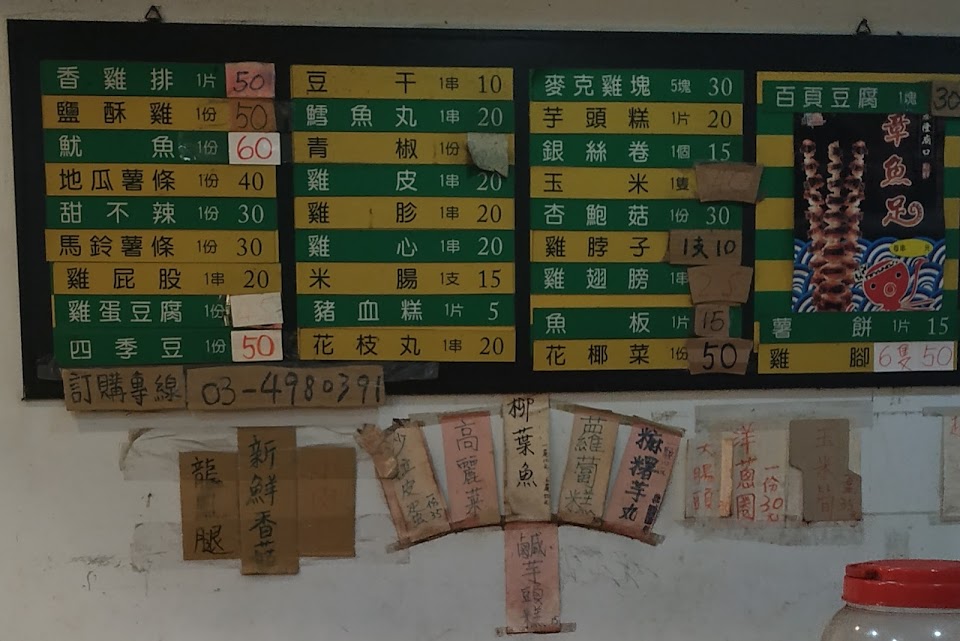 香雞排 1片 50
鹽酥雞 1份 50
魷魚 1份 60
地瓜薯條 1份 40
甜不辣 1份 30
馬鈴薯條 1份 30
雞屁股 1串 20
雞蛋豆腐 1份
四季豆 1份 50
豆干 1串 10
鱈魚丸 1串 20
青椒 1份
雞皮 1串 20
雞胗 1串 20
雞心 1串 20
米腸 1支 15
豬血糕 1片 5
花枝丸 1串 20
麥克雞塊 5塊 30
芋頭糕 1片 20
銀絲卷 1個 15
玉米 1隻
杏鮑菇 1份 30
雞脖子 1支10
雞翅膀 1串
魚板 1片 15
花椰菜 1份 50
百頁豆腐 1塊 30
章魚足
薯餅 1片 15
雞腳 6隻 50
訂購專線 03-4980391
龍 腿
新鮮香菇
高麗菜
柳葉魚
蘿蔔糕
麻糬芋丸
鹹芋頭糕
洋蔥圈
一份30元